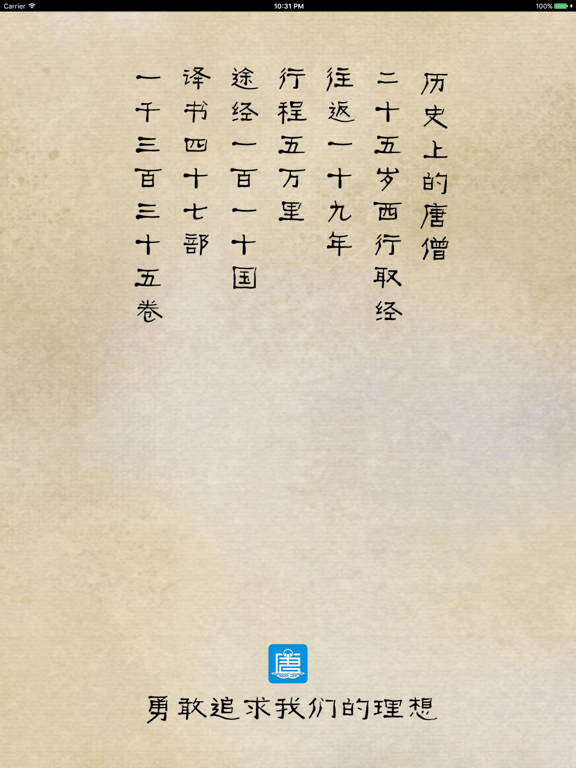 Carrier
10:31 PM
100%
历史上的唐僧
二十五岁西行取经
往返一十九年
行程五万里
途经一百一十国
译书四十七部
一千三百三十五卷
唐
勇敢追求我们的理想